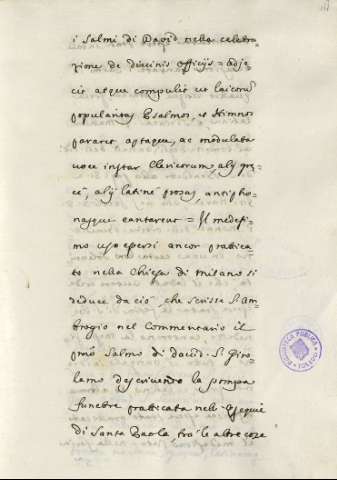 i Salmi di David nella celebra-
zione de Divinis officijs = adje-
cit atque compulit ut laicorũ
popularitas Psalmos, et Himnos
pararet aptaque, ac modulata
voce instar Clericorum, alij gre-
cè, alij latinè prosas antipho-
nasque cantarent = Il medesi-
mo uso essersi ancor prattica-
to nella Chiesa di Milano si
deduce da ciò, che scrisse S. Am-
brogio nel Commentario il
pmo Salmo di david. S. Giro-
lamo descrivendo la pompa
funebre pratticata nell'Esequie
di Santa Paola, frà le altre cose
BIBLIOTECA PUBLICA
TOLEDO